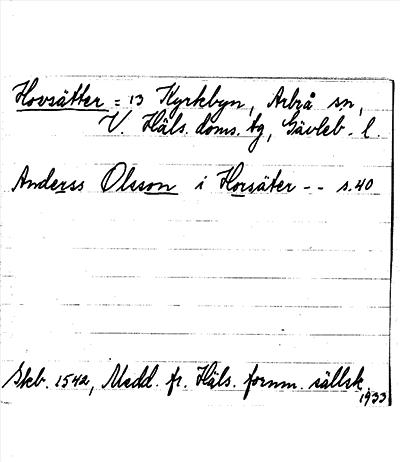 Hovsätter = 13 Kyrkbyn, Arbrå sn,
V. Häls. doms. tg, Gävleb. l.
Anderss Olsson i Horsäter -- s. 40
Skb. 1542, Medd. fr. Häls. fornm. sällsk.
1933